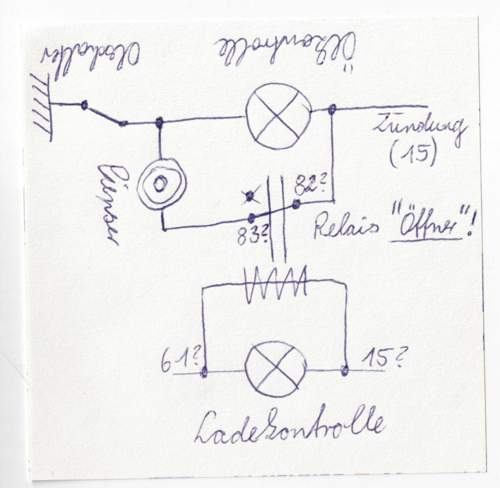 Ölschalter
Ölkontrolle
Zündung
(15)
Piepser
82?
83?
Relais "Öffner"!
61?
15?
Ladekontrolle